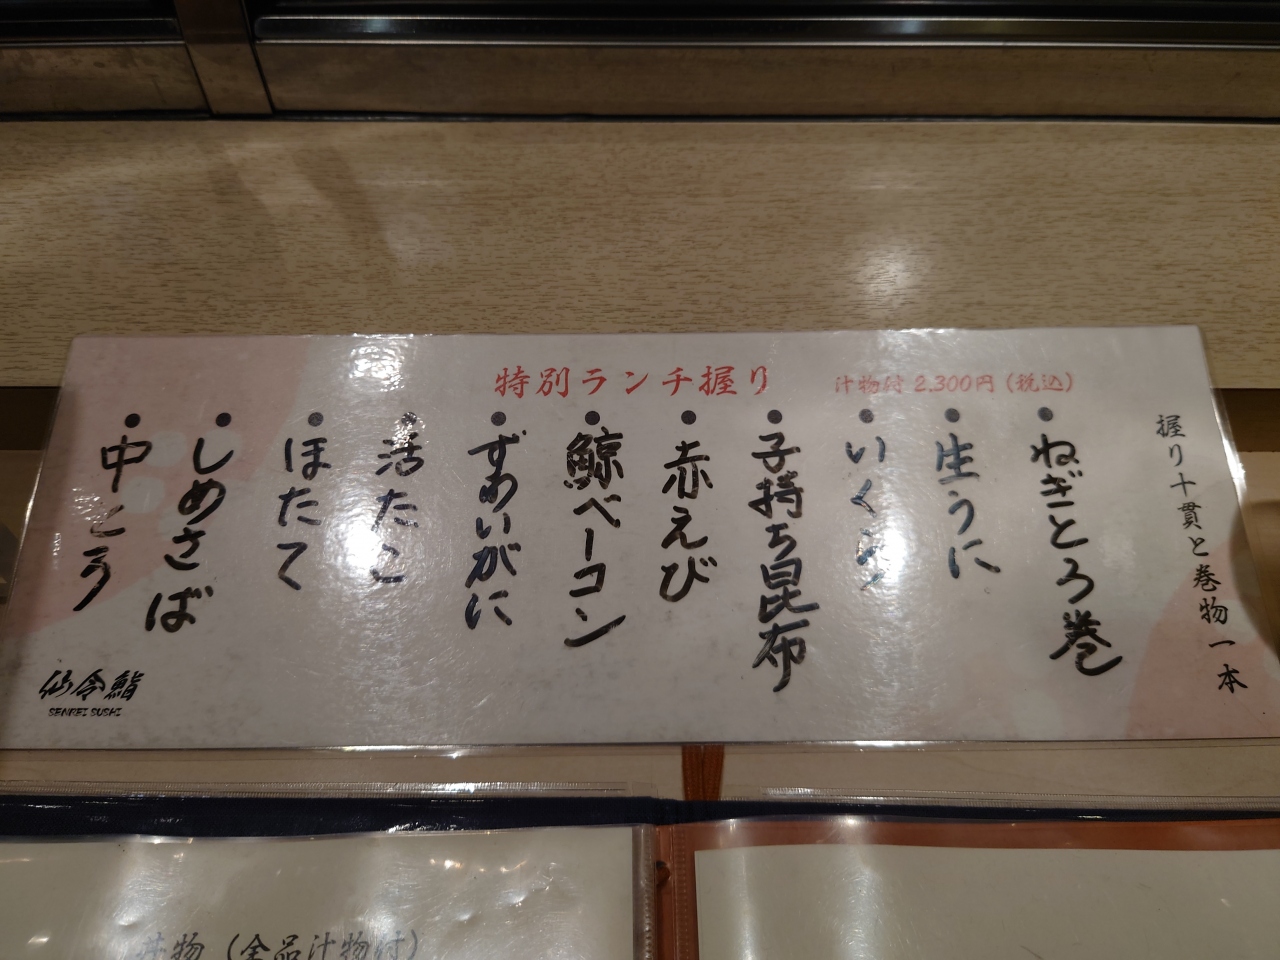 特別ランチ握り
汁物付 2,300円（税込）
握り十貫と巻物一本
●ねぎとろ巻
●生うに
●いくら
●子持ち昆布
●赤えび
●鯨ベーコン
●ずわいがに
●活たこ
●ほたて
●しめさば
●中とろ
仙令鮨
SENREI SUSHI
丼物（全品汁物付）